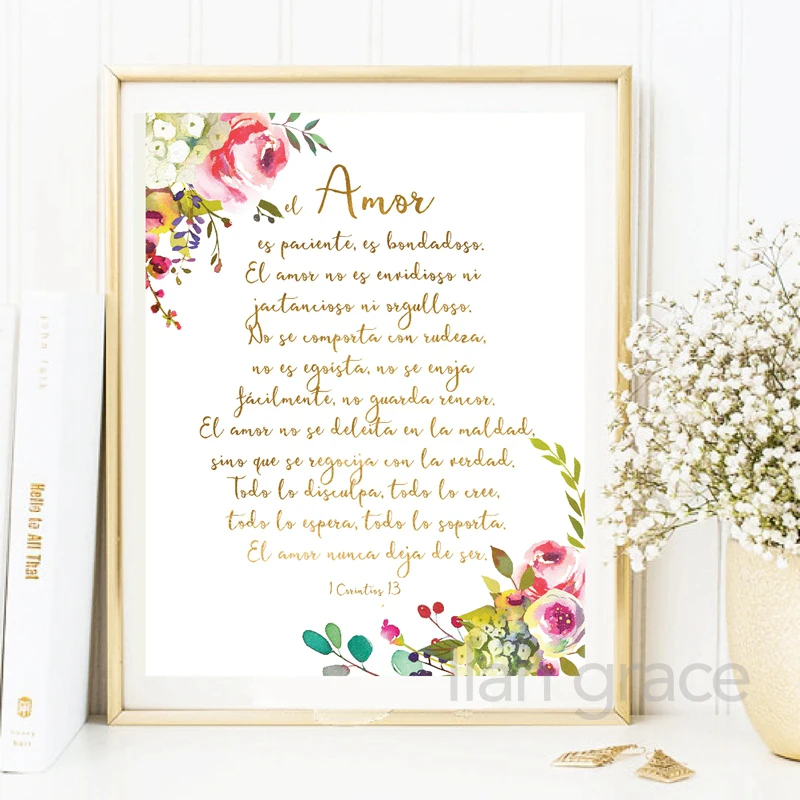 el Amor
es paciente, es bondadoso.
El amor no es envidioso ni
jactancioso ni orgulloso.
No se comporta con rudeza,
no es egoísta, no se enoja
fácilmente, no guarda rencor.
El amor no se deleita en la maldad,
sino que se regocija con la verdad.
Todo lo disculpa, todo lo cree,
todo lo espera, todo lo soporta.
El amor nunca deja de ser.
1 Corintios 13
Hello to All That
grace